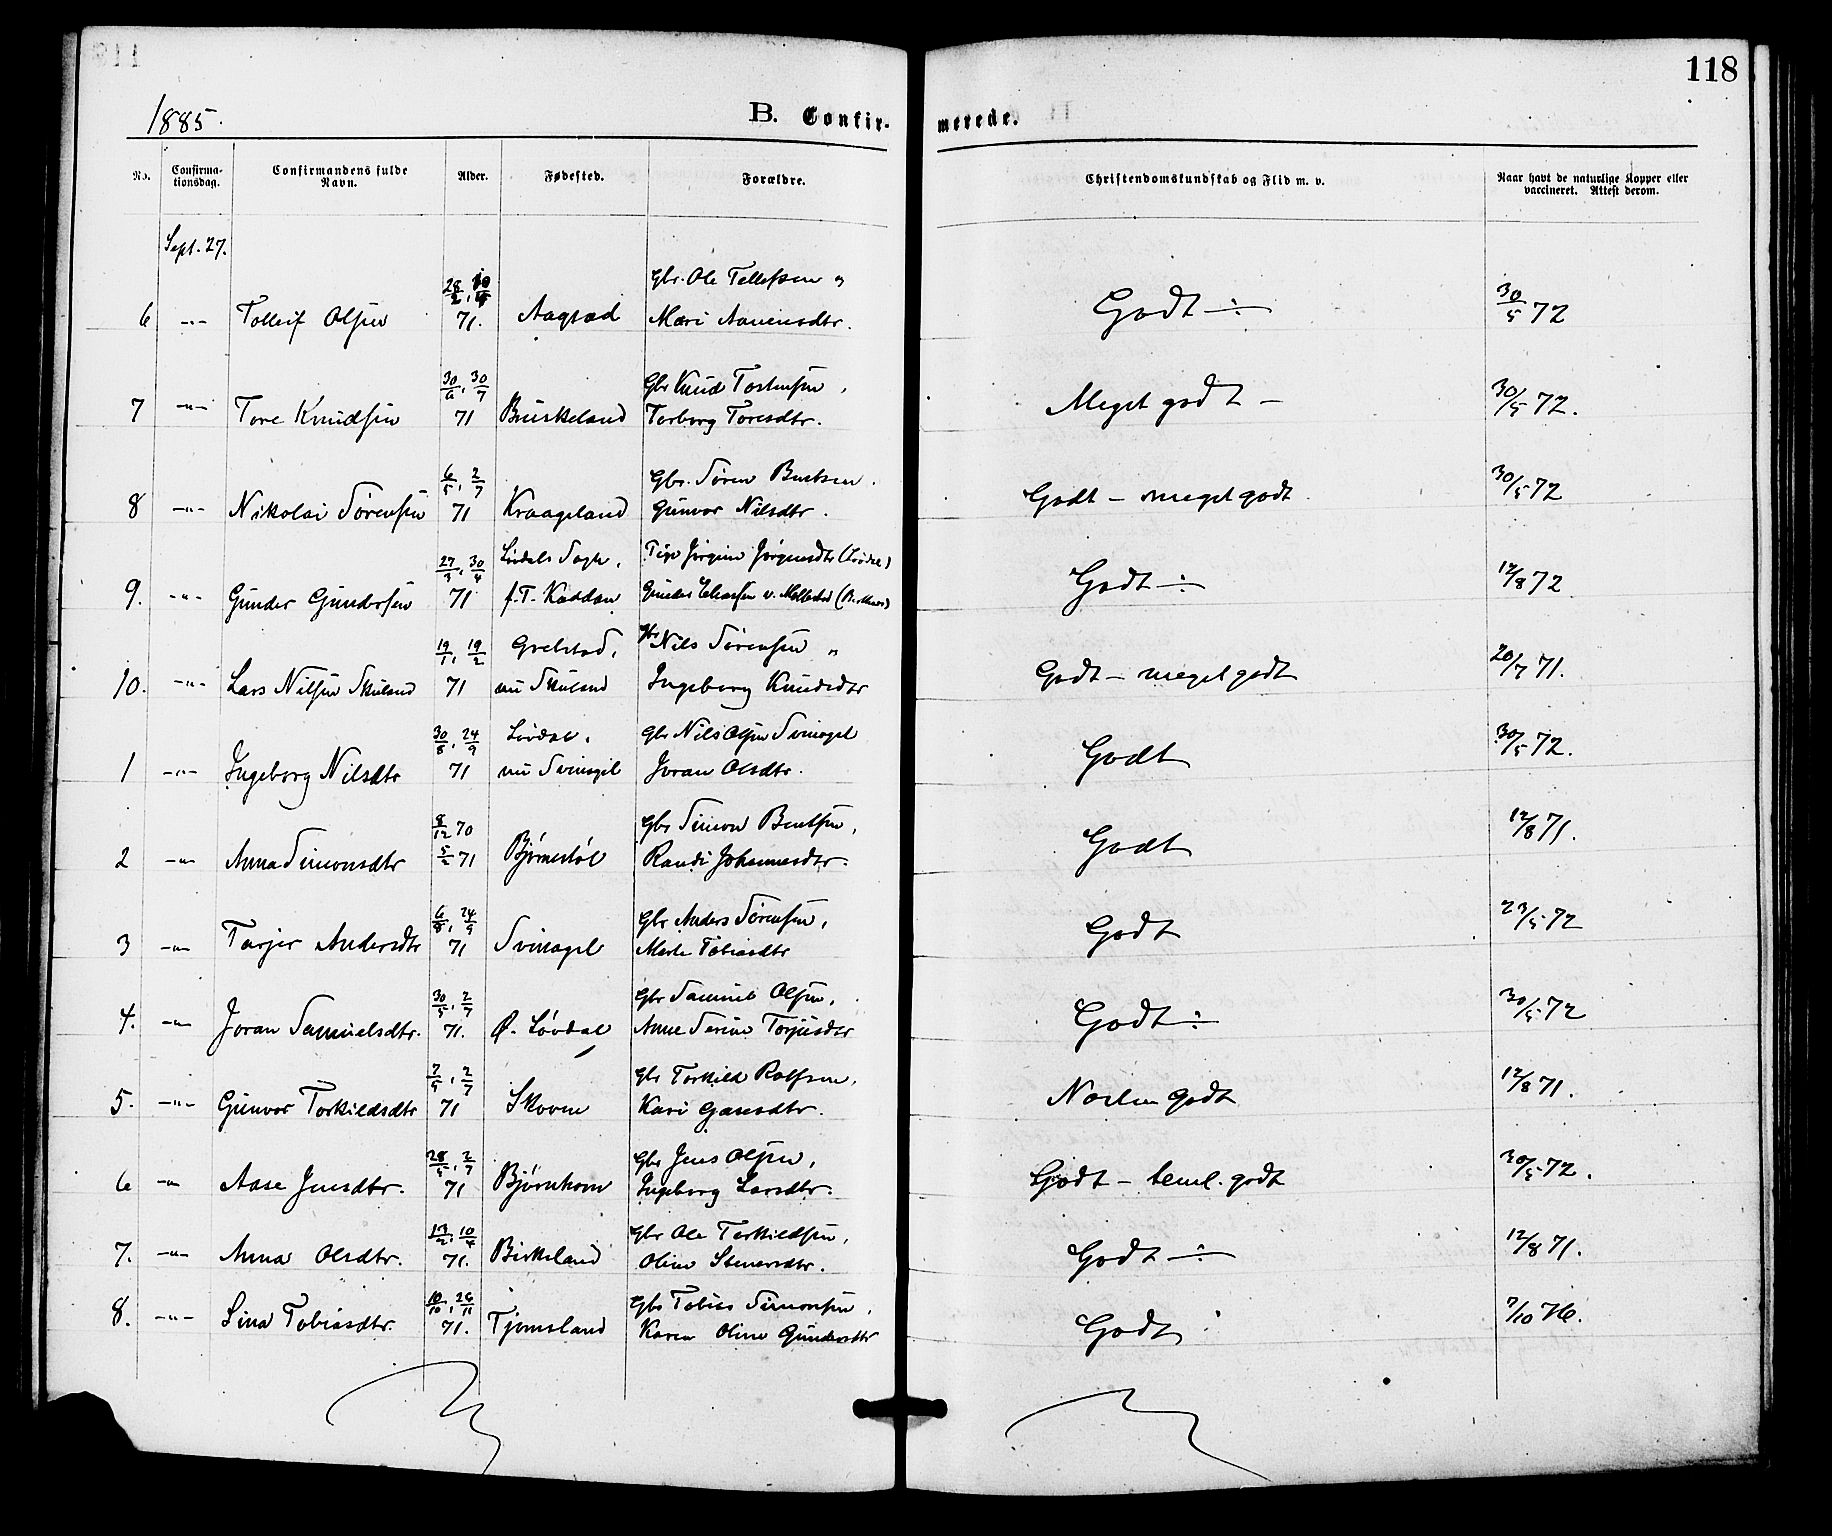 118
1885.
B. Confir- merede.
No. Confirma-tionsdag. Confirmandens fulde Navn. Alder. Fødested. Forældre. Christendomskundskab og Flid m. v. Naar havt de naturlige Kopper eller vaccineret. Attest derom.
Sept. 27.
28/2, Gbr. Ole Tellefsen og
6 -"- Tolleif Olsen 71. Aagsæd Mari Aanensdtr. Godt 30/5 72
30/6, 30/7 Gbr Knud Tostensen,
7 -"- Tore Knudsen 71 Birkeland Torborg Toresdtr. Meget godt - 30/5 72.
6/5, 2/7 Gbr. Søren Bentsen.
8 -"- Nikolai Sørensen 71 Kraageland Gunvor Nilsdtr. Godt - meget godt. 30/5 72
27/3, 30/4 Løvdals Sogn, Jørgine Jørgensdtr (Lövdal)
9. -"- Gunder Gundersen 71 f. T. Gunder
Godt 12/8 72
19/1, 19/2 Grelstad, Gbr Nils Sørensen "
10. -"- Lars Nilsen Skuland 71 nu Skuland Ingeborg Knudsdtr Godt - meget godt 20/7 71.
30/8, 24/9 Lövdal, Gbr Nils Olsen Svinagel
1 -"- Ingeborg Nilsdtr 71 nu Svinagel Joran Olsdtr. Godt 30/5 72.
8/12 70 Gbr Simon Bentsen,
2 -"- Anna Simonsdtr 5/2 71 Bjørnestøl Randi Johannesdtr. Godt 12/8 71.
6/8, 24/9 Gbr Anders Sørensen,
3 -"- Tarjer Andersdtr 71 Svinagel Marte Tobiasdtr Godt 23/5 72
30/5, 2/7 Gbr Samuel Olsen,
4. -"- Joran Samuelsdtr. 71. Ø. Løvdal Anne Serine Torjusdtr Godt 30/5 72
7/5, 2/7 Gbr Torkild Rolfsen,
5. -"- Gunvor Torkildsdtr 71 Skoven Kari Gasesdtr. Næsten godt 12/8 71.
28/5, 2/7 Gbr Jens Olsen,
6 -"- Aase Jensdtr. 71 Bjørnhom Ingeborg Larsdtr. Godt - teml. godt 30/5 72.
13/2, 10/4 Gbr Ole Torkildsen,
7. -"- Anna Olsdtr. 71. Birkeland Oline Stenersdtr. Godt 12/8 71.
10/10, 26/11 Gbr Tobias Simonsen,
8. -"- Lina Tobiasdtr. 71. Tjomsland Karen Oline Gundersdtr Godt 7/10 76.